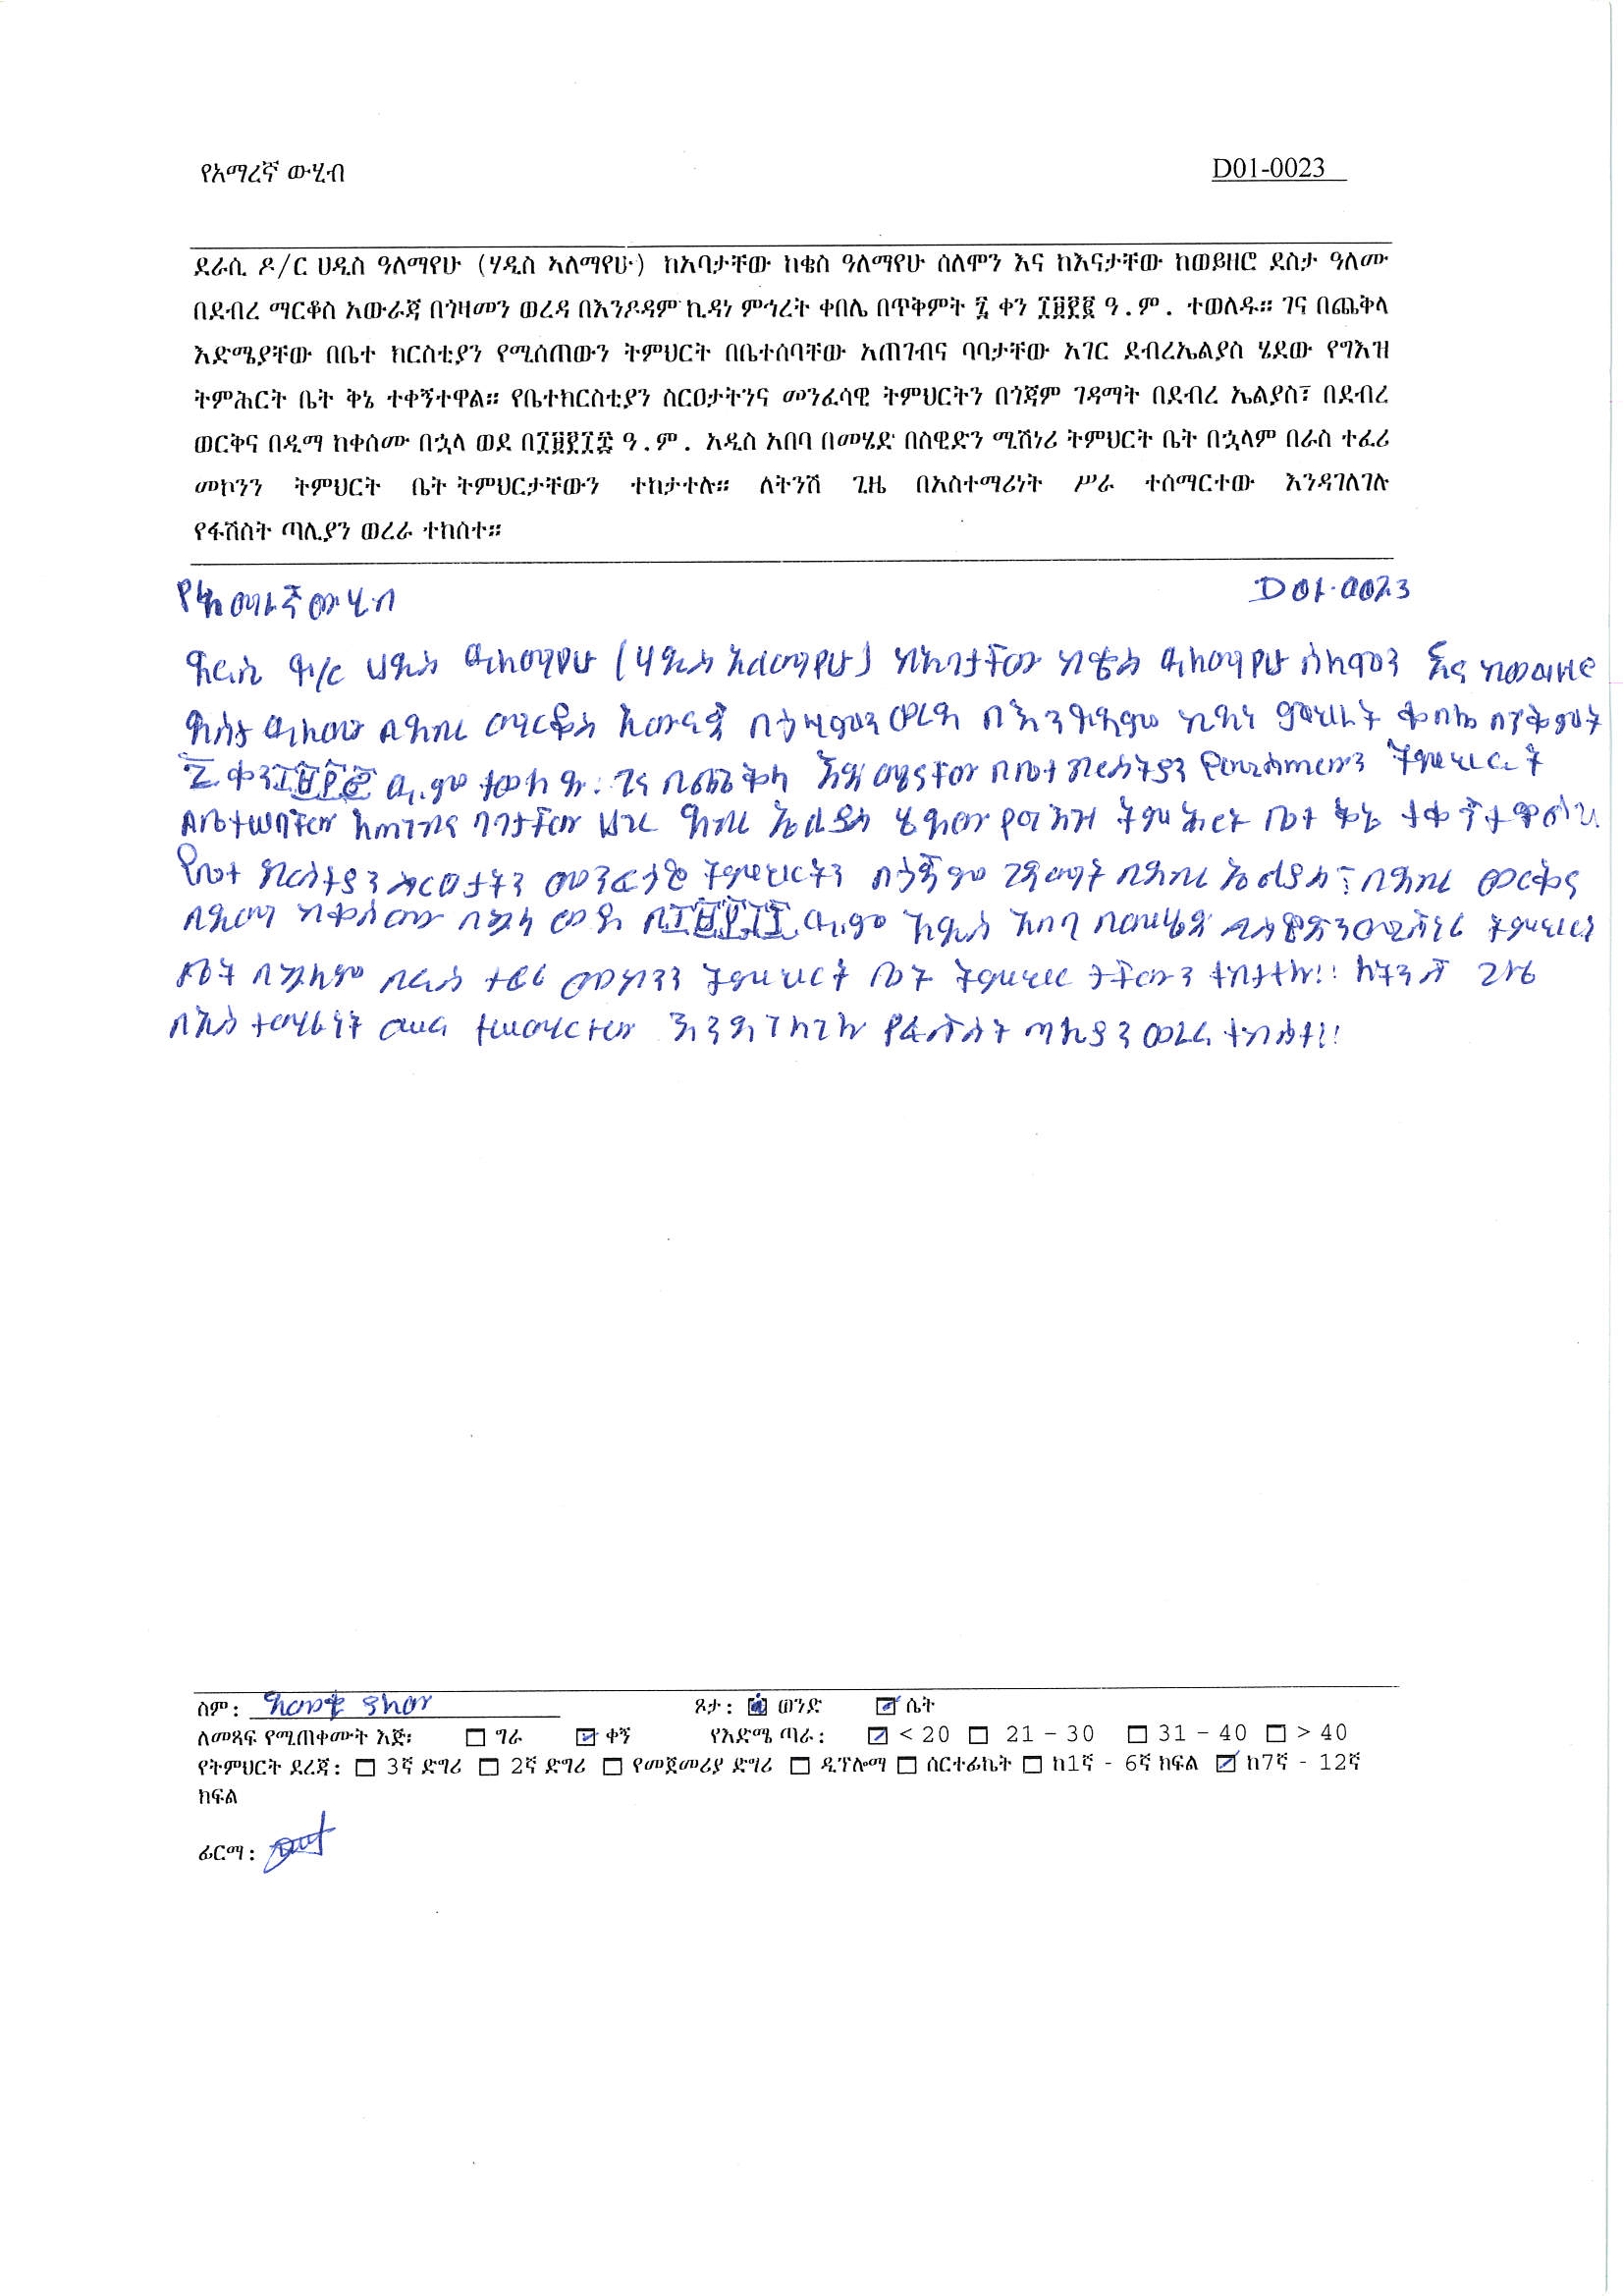 የአማረኛ ውሂብ D01-0023
ደራሲ ዶ/ር ሀዲስ ዓለማየሁ (ሃዲስ ኣለማየሁ) ከአባታቸው ከቄስ ዓለማየሁ ሰለሞን እና ከእናታቸው ከወይዘሮ ደስታ ዓለሙ
በደብረ ማርቆስ አውራጃ በጎዛመን ወረዳ በእንዶዳም ኪዳነ ምኅረት ቀበሌ በጥቅምት ፯ ቀን ፲፱፻፪ ዓ.ም. ተወለዱ። ገና በጨቅላ
እድሜያቸው በቤተ ክርስቲያን የሚሰጠውን ትምህርት በቤተሰባቸው አጠገብና ባባታቸው አገር ደብረኤልያስ ሄደው የግእዝ
ትምሕርት ቤት ቅኔ ተቀኝተዋል። የቤተክርስቲያን ስርዐታትንና መንፈሳዊ ትምህርትን በጎጃም ገዳማት በደብረ ኤልያስ፣ በደብረ
ወርቅና በዲማ ከቀሰሙ በኋላ ወደ በ፲፱፻፲፰ ዓ.ም. አዲስ አበባ በመሄድ በስዊድን ሚሽነሪ ትምህርት ቤት በኋላም በራስ ተፈሪ
መኮንን ትምህርት ቤት ትምህርታቸውን ተከታተሉ። ለትንሽ ጊዜ በአስተማሪነት ሥራ ተሰማርተው እንዳገለገሉ
የፋሽስት ጣሊያን ወረራ ተከሰተ።
የአማረኛ ውሂብ D01-0023
ደራሲ ዶ/ር ሀዲስ ዓለማየሁ (ሃዲስ አለማየሁ) ከአባታቸው ከቄስ ዓለማየሁ ሰለሞን እና ከወይዘሮ
ደስታ ዓለሙ በደብረ ማርቆስ አውራጃ በጎዛመን ወረዳ በእንዶዳም ኪዳነ ምህረት ቀበሌ በጥቅምት
፯ ቀን ፲፱፻፪ ዓ.ም ተወለዱ። ገና በጨቅላ እድሜያቸው በቤተ ክርስትያን የሚሰጠውን ትምህርት
በቤተሠባቸው አጠገብና ባባታቸው ሀገር ደብረ ኤልያስ ሄደው የግእዝ ትምሕርት ቤት ቅኔ ተቀኝተዋል።
የቤተ ክርስትያን ስርዐታትን መንፈሳዊ ትምህርትን በጎጃም ገዳማት በደብረ ኤልያስ፣ በደብረ ወርቅና
በዲማ ከቀሰሙ በኋላ ወደ በ፲፱፻፲፰ ዓ.ም አዲስ አበባ በመሄድ በስዊድን ሚሽነሪ ትምህርት
ቤት በኋላም በራስ ተፈሪ መኮንን ትምህርት ቤት ትምህርታቸውን ተከታተሉ። ለትንሽ ጊዜ
በአስተማሪነት ሠራ ተሠማርተው እንዳገለገሉ የፋሽስት ጣሊያን ወረራ ተከሰተ።
ስም: ጾታ: ወንድ ሴት
ለመጻፍ የሚጠቀሙት እጅ፡ ግራ ቀኝ የእድሜ ጣራ: < 20 21 – 30 31 – 40 > 40
የትምህርት ደረጃ: 3ኛ ድግሪ 2ኛ ድግሪ የመጀመሪያ ድግሪ ዲፕሎማ ሰርተፊኬት ከ1ኛ - 6ኛ ክፍል ከ7ኛ - 12ኛ
ክፍል
ፊርማ: